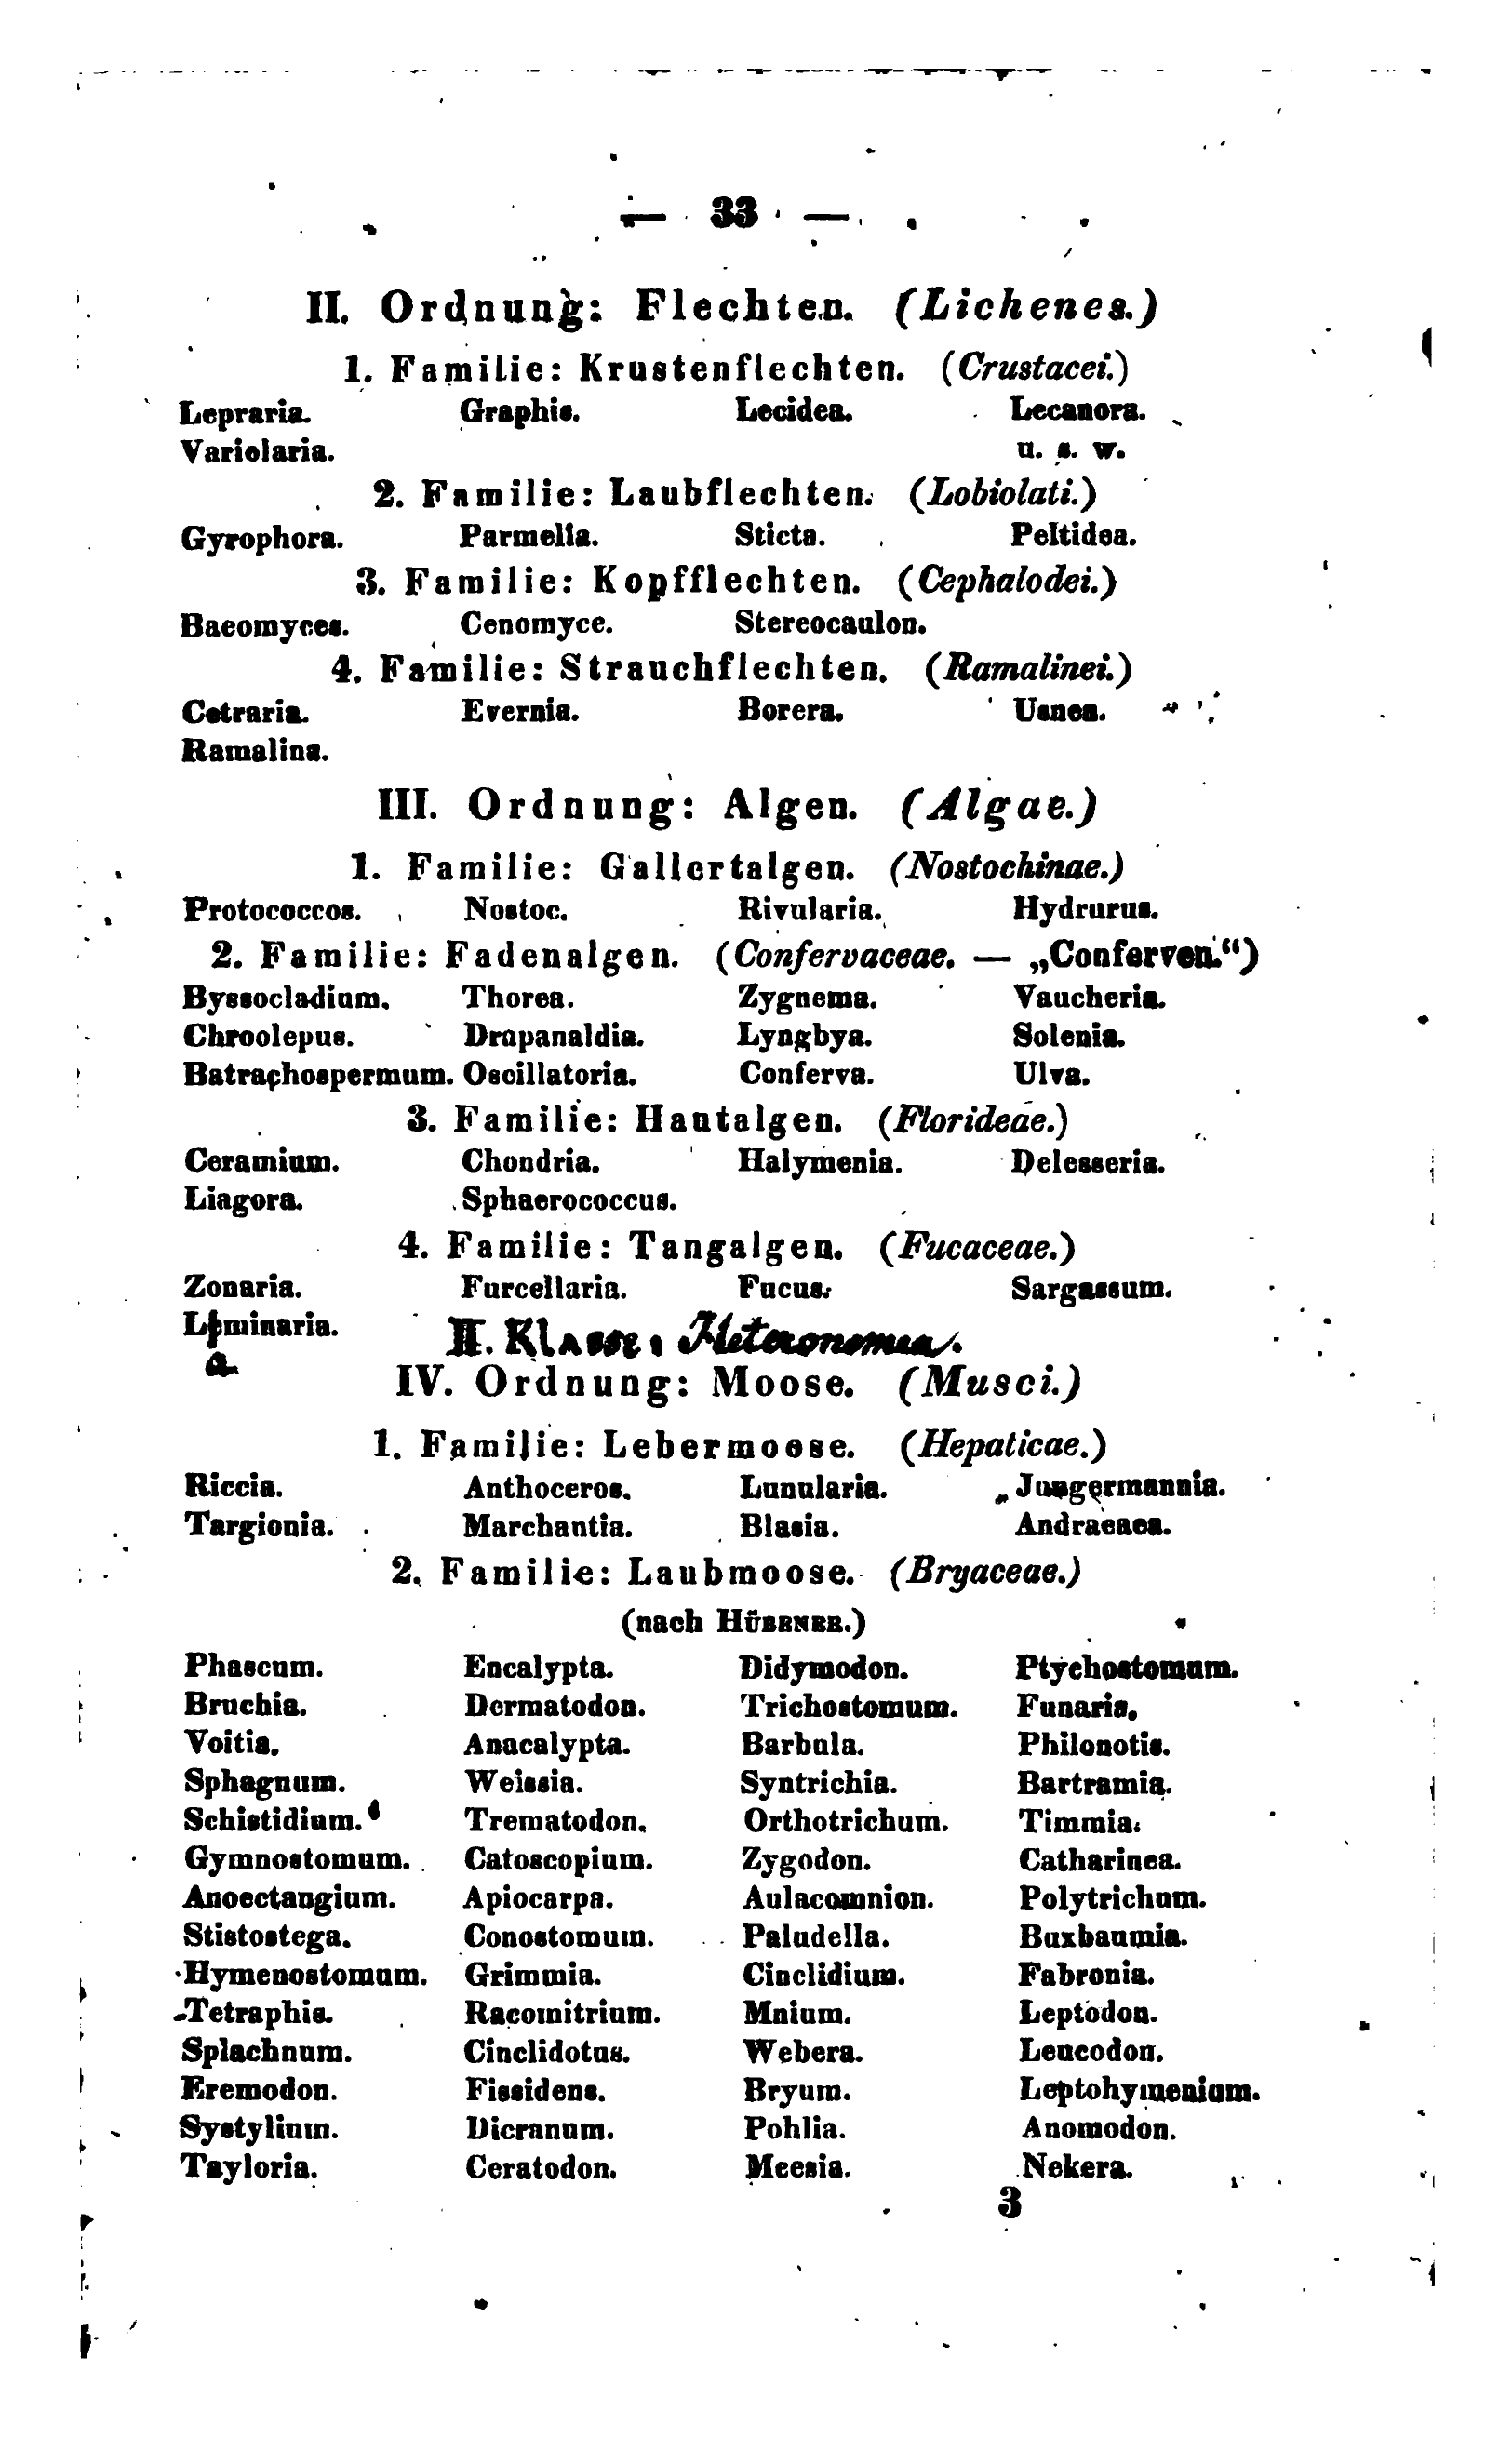 — 33 —
II. Ordnung: Flechten. (Lichenes.)
1. Familie: Krustenflechten. (Crustacei.)
Lepraria. Graphis. Lecidea. Lecanora.
Variolaria. u. s. w.
2. Familie: Laubflechten. (Lobiolati.)
Gyrophora. Parmelia. Sticta. Peltidea.
3. Familie: Kopfflechten. (Cephalodei.)
Baeomyces. Cenomyce. Stereocaulon.
4. Familie: Strauchflechten. (Ramalinei.)
Cetraria. Evernia. Borera. Usnea.
Ramalina.
III. Ordnung: Algen. (Algae.)
1. Familie: Gallertalgen. (Nostochinae.)
Protococcos. Nostoc. Rivularia. Hydrurus.
2. Familie: Fadenalgen. (Confervaceae. — „Conferven.“)
Byssocladium. Thorea. Zygnema. Vaucheria.
Chroolepus. Drapanaldia. Lyngbya. Solenia.
Batrachospermum. Oscillatoria. Conferva. Ulva.
3. Familie: Hautalgen. (Florideae.)
Ceramium. Chondria. Halymenia. Delesseria.
Liagora. Sphaerococcus.
4. Familie: Tangalgen. (Fucaceae.)
Zonaria. Furcellaria. Fucus. Sargassum.
Liminaria. II. Klasse: Heteronomea.
a
IV. Ordnung: Moose. (Musci.)
1. Familie: Lebermoose. (Hepaticae.)
Riccia. Anthoceros. Lunularia. Jungermannia.
Targionia. Marchantia. Blasia. Andraeaea.
2. Familie: Laubmoose. (Bryaceae.)
(nach HÜBENER.)
Phascum. Encalypta. Didymodon. Ptychostomum.
Bruchia. Dermatodon. Trichostomum. Funaria.
Voitia. Anacalypta. Barbula. Philonotis.
Sphagnum. Weissia. Syntrichia. Bartramia.
Schistidium. Trematodon. Orthotrichum. Timmia.
Gymnostomum. Catoscopium. Zygodon. Catharinea.
Anoectangium. Apiocarpa. Aulacomnion. Polytrichum.
Stistostega. Conostomum. Paludella. Buxbaumia.
Hymenostomum. Grimmia. Cinclidium. Fabronia.
Tetraphis. Racomitrium. Mnium. Leptodon.
Splachnum. Cinclidotus. Webera. Leucodon.
Eremodon. Fissidens. Bryum. Leptohymenium.
Systylium. Dicranum. Pohlia. Anomodon.
Tayloria. Ceratodon. Meesia. Nekera.
3